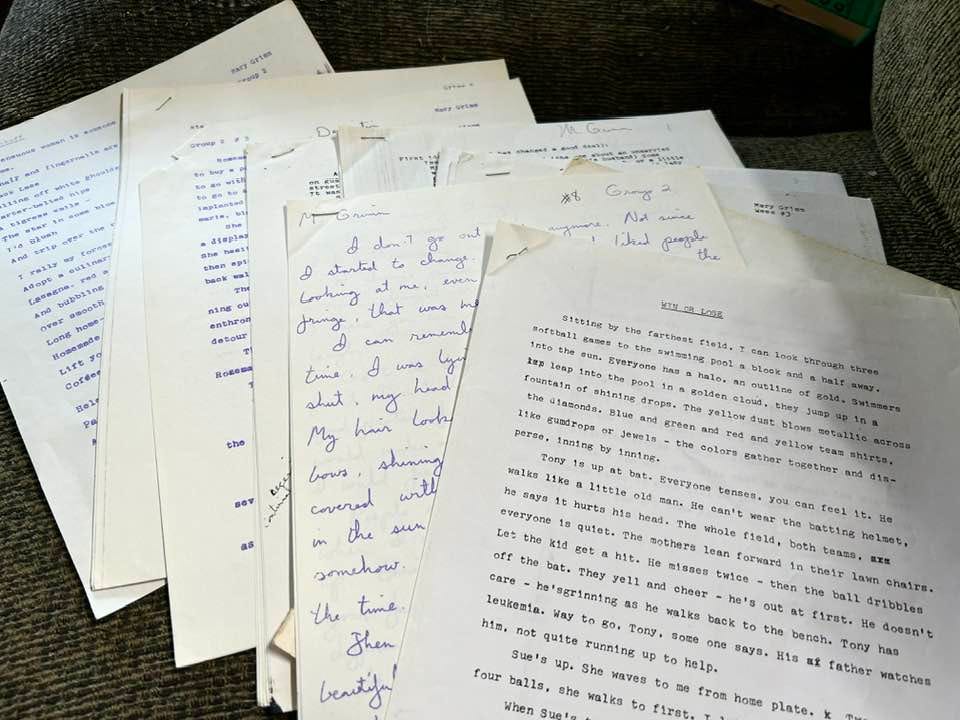 Mary Grimm
Group 2
sensuous woman is someone
half and fingernails are
Lace
falling off white shoulders
garter-belted hips
A tigress wails -
The star in some blue
I'd Blush
And trip over the
I rally my forces
Adopt a culinary
Lasagna, red a
And bubbling
Over smooth
Long home-
Homemade
Lift yo
Coffee
Hel
Pa
Mary Grimm
Group 2 # 3
Homema
to buy a p
to go with
to go to s
implanted
marie, bl
She
a display
She hasi
then spi
back wal
The
ning ou
enthron
detour
T
Rosema
T
the
sev
as
M Grimm 1
First
has changed a good deal:
on gua
street
It was
Mary Grimm
Week #3
M Grimm #8 Group 2
I don't go out anymore. Not since
I started to change. I liked people
looking at me, even the
fringe, that was me
I can rememb
time. I was lyin
shut, my head
My hair look
bows, shining
covered with
in the sun
somehow.
the time.
Then
beautiful
WIN OR LOSE
Sitting by the farthest field. I can look through three
softball games to the swimming pool a block and a half away.
into the sun. Everyone has a halo, an outline of gold. Swimmers
leap into the pool in a golden cloud, they jump up in a
fountain of shining drops. The yellow dust blows metallic across
the diamonds. Blue and green and red and yellow team shirts,
like gumdrops or jewels - the colors gather together and dis-
perse, inning by inning.
Tony is up at bat. Everyone tenses, you can feel it. He
walks like a little old man. He can't wear the batting helmet,
he says it hurts his head. The whole field, both teams,
everyone is quiet. The mothers lean forward in their lawn chairs.
Let the kid get a hit. He misses twice - then the ball dribbles
off the bat. They yell and cheer - he's out at first. He doesn't
care - he'sgrinning as he walks back to the bench. Tony has
leukemia. Way to go, Tony, some one says. His father watches
him, not quite running up to help.
Sue's up. She waves to me from home plate.
four balls, she walks to first. I
When Sue's